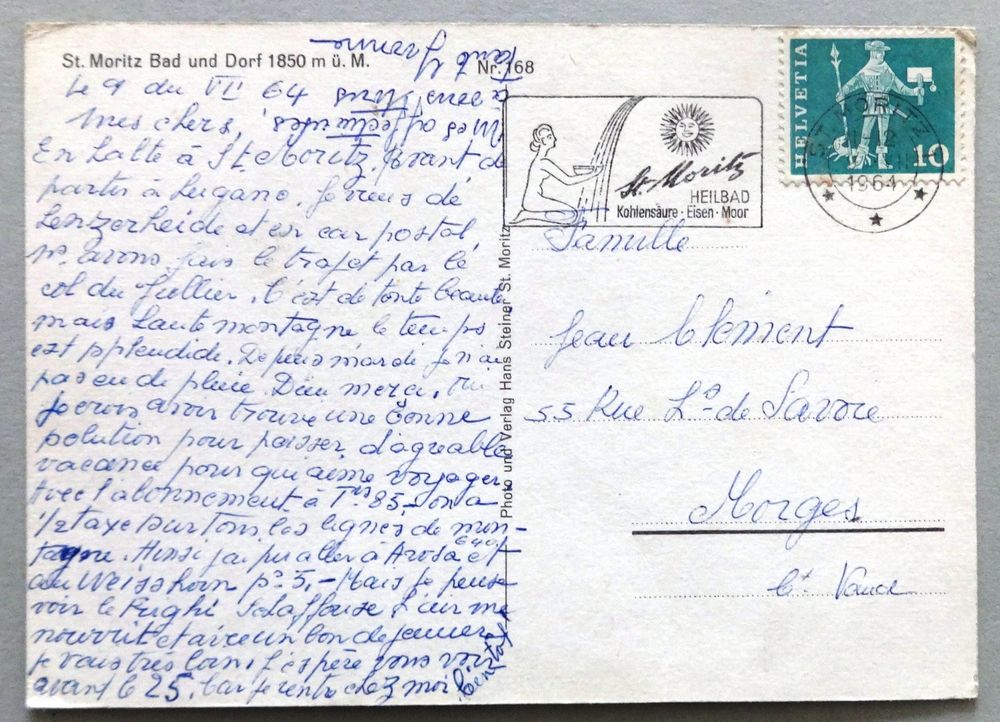 St. Moritz Bad und Dorf 1850 m ü. M.
Nr. 168
Le 9 du VII 64
Mes chers,
En halte à St. Moritz, avant de
partir à Lugano. Je viens de
Lenzerheide et en car postal,
ns. avons fais le trajet par le
col du Jullier. C'est de toute beauté
mais haute montagne le temps
est splendide. Depuis mardi je n'ai
pas eu de pluie. Dieu merci.
je crois avoir trouvé une bonne
solution pour passer d'agreable
vacance pour qui aime voyager
Avec l'abonnement à Frs 85.- on a
1/2 taxe sur tous les lignes de mon-
tagne. Ainsi j'ai pu aller à Arosa et
au Weisshorn pr. 5.- Mais je pense
voir le Righi Schaffouse L'air me
nourrit et avec un bon dejeuner
je vais très loin. J'espère vous voir
avant le 25. Car je rentre chez moi
Mes affectueuses
à vous tous
Tante
Photo und Verlag Hans Steiner St. Moritz
St. Moritz
HEILBAD
Kohlensäure · Eisen · Moor
HELVETIA
10
ST. MORITZ
1964
Famille
Jean Clément
55 Rue Ls. de Savoie
Morges
Ct. Vaud